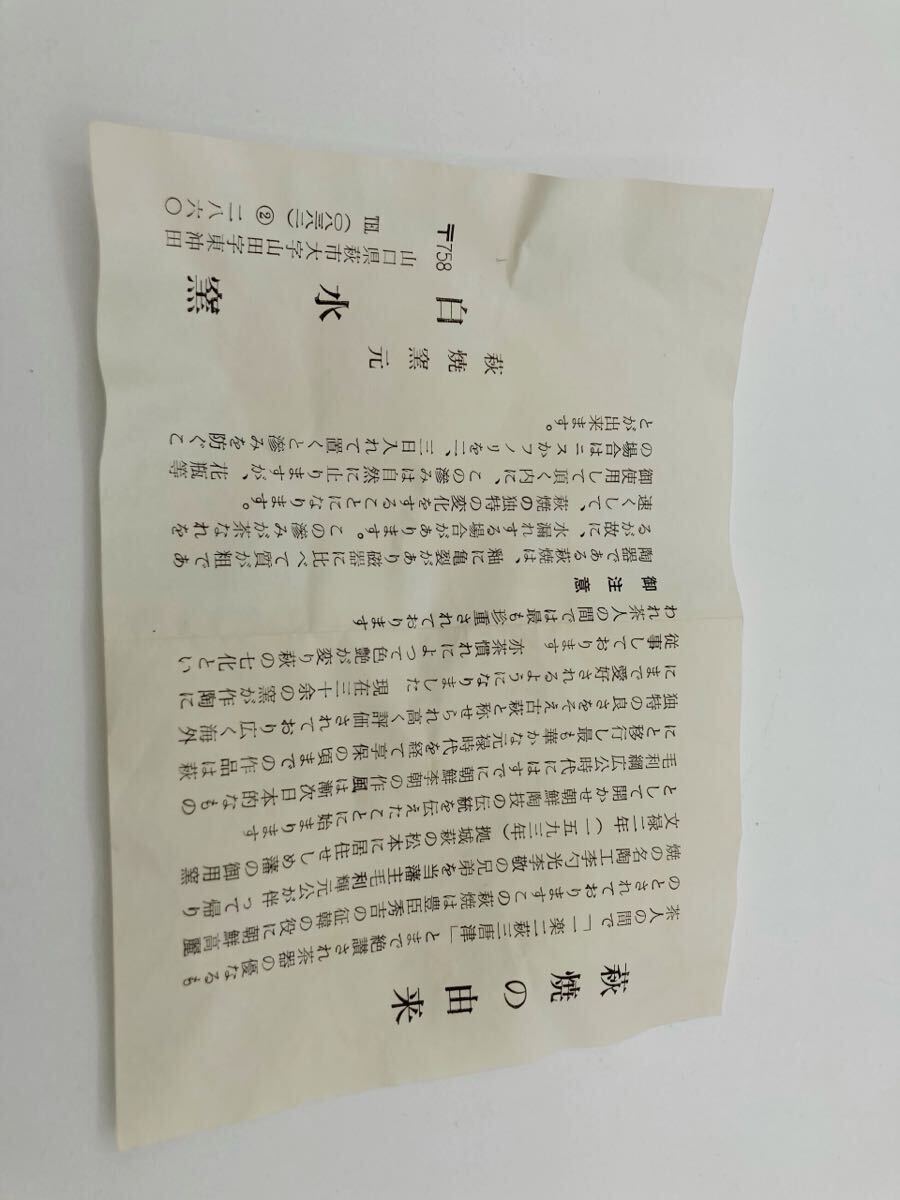 萩焼の由来
茶人の間で「一楽二萩三唐津」とまで絶讃され茶器の優なるも
のとされておりますこの萩焼は豊臣秀吉の征韓の役に朝鮮高麗
焼の名陶工李勺光李敬の兄弟を当藩主毛利輝元公が伴って帰り
文禄二年（一五九三年）拠城萩の松本に居住せしめ藩の御用窯
として開かせ朝鮮陶技の伝統を伝えたことに始まります
毛利綱広公時代にはすでに朝鮮李朝の作風は漸次日本的なもの
にと移行し最も華かな元禄時代を経て享保の頃までの作品は萩
独特の良さをそえ古萩と称せられ高く評価されており広く海外
にまで愛好されるようになりました　現在三十余の窯が作陶に
従事しております　亦茶慣れによって色艶が変り萩の七化とい
われ茶人の間では最も珍重されております
御注意
陶器である萩焼は、釉に亀裂があり磁器に比べて質が粗であ
るが故に、水漏れする場合があります。この滲みが茶なれを
速くして、萩焼の独特の変化をすることになります。
御使用して頂く内に、この滲みは自然に止りますが、花瓶等
の場合はニスかフノリを二、三日入れて置くと滲みを防ぐこ
とが出来ます。
萩焼窯元
白水窯
〒758 山口県萩市大字山田字東沖田
TEL（〇八三八二）②二八六〇